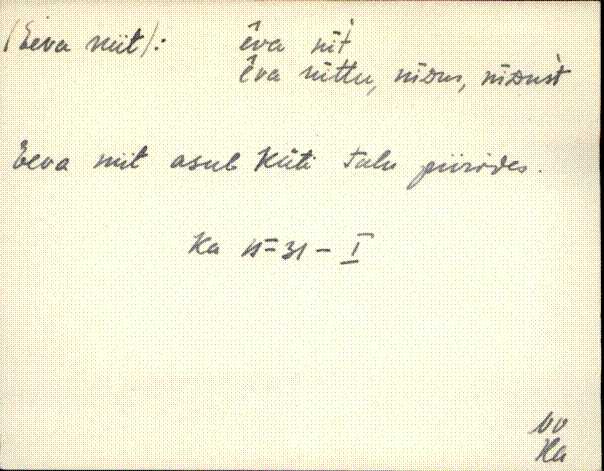 (Eeva niit): ēva nīt̀
ēva nīttu, nīᴅus, nīᴅust̀
Eeva niit asub Küti talu piirides.
Ka II=31 - I
VV
Ha